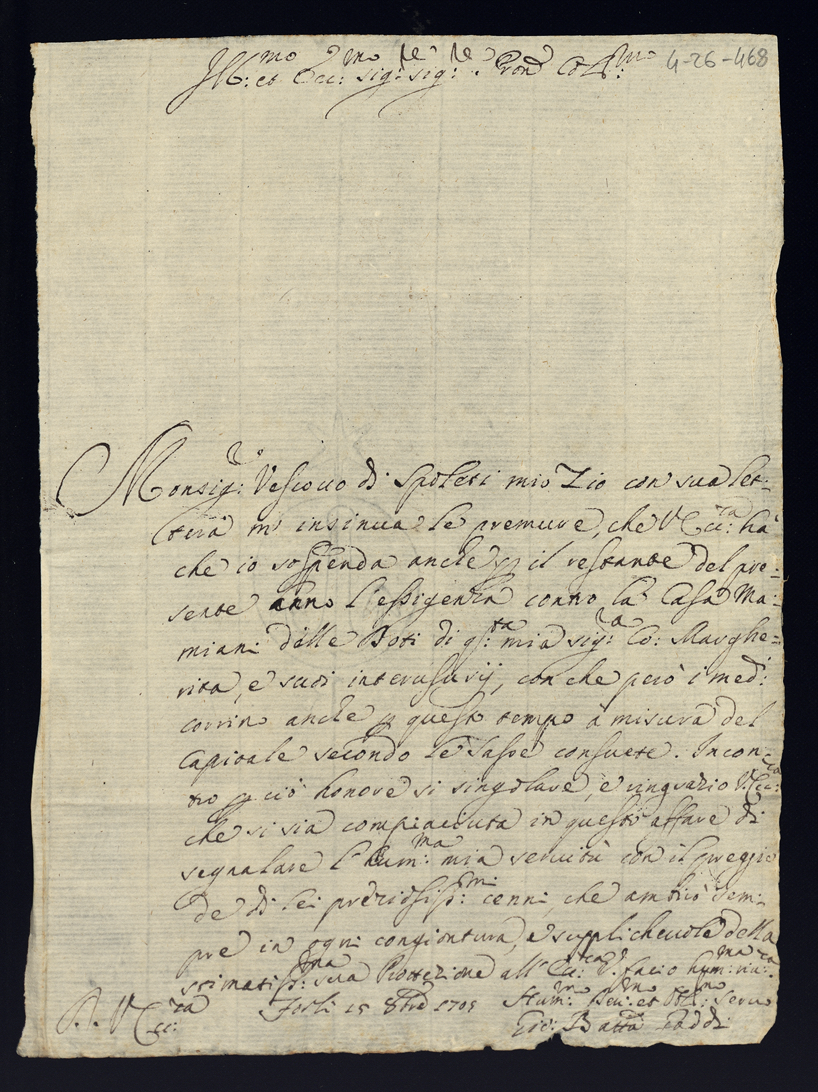 Ill:mo et Ecc:mo Sig:re Sig:re Pron Col:mo
4-26-468
Monsig:r Vescouo di Spoleti mio Zio con sua let-
tera m' insinua le premure, che V. Ecc:za hà
che io sospenda anche p il restante del pre-
sente anno l'essigenza contro la Casa Ma-
miani delle Doti di q:sta mia sig:ra Co: Marghe-
rita, e suoi interusurij, con che però i med:i
corrino anche p questo tempo à misura del
Capitale secondo le Tasse consuete. Incon-
tro p ciò honore si singolare, e ringrazio V. Ecc:za
che si sia compiacciuta in questo affare di
segnalare l' hum:ma mia seruitù con il preggio
de di lei preziosiss:mi cenni, che ambirò sem-
pre in ogni congiontura, e supplicheuole della
stimatiss:ma sua Protezione all' Ecc:za V. facio hum:ma riu:za
D. V. Ecc:za Forlì 15 8bre 1705
Hum:mo Deu:mo et Obl:mo Seruo
Batta